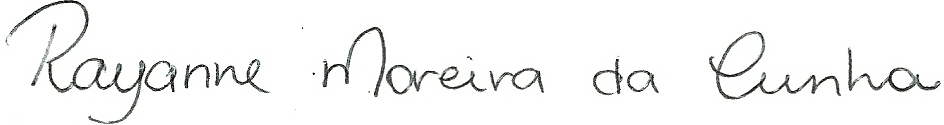 Rayanne Moreira da Cunha